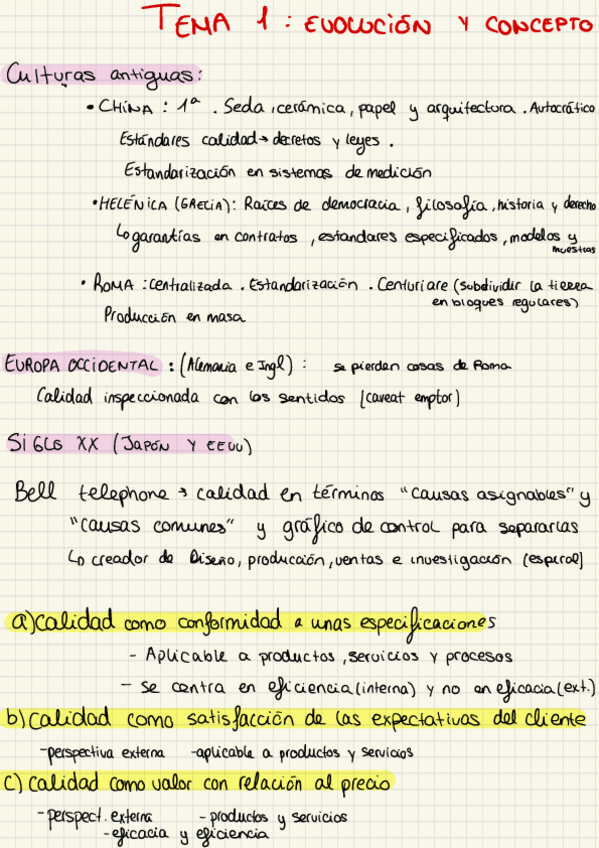 TEMA 1 : EVOLUCIÓN Y CONCEPTO
Culturas antiguas:
• CHINA : 1ª . Seda, cerámica, papel y arquitectura . Autocrático
Estándares calidad → decretos y leyes .
Estandarización en sistemas de medición
• HELÉNICA (GRECIA): Raíces de democracia, filosofía, historia y derecho
↳ garantías en contratos , estandares especificados, modelos y
muestras
• ROMA : centralizada . Estandarización . Centuriare (subdividir la tierra
en bloques regulares)
Producción en masa
EUROPA OCCIDENTAL : (Alemania e Ingl) : se pierden cosas de Roma
Calidad inspeccionada con los sentidos (caveat emptor)
SIGLO XX (JAPÓN Y EEUU)
Bell telephone → calidad en términos "causas asignables" y
"causas comunes" y gráfico de control para separarlas
↳ creador de Diseño, producción, ventas e investigación (espiral)
a) calidad como conformidad a unas especificaciones
- Aplicable a productos, servicios y procesos
- se centra en eficiencia (interna) y no en eficacia (ext.)
b) calidad como satisfacción de las expectativas del cliente
- perspectiva externa - aplicable a productos y servicios
c) calidad como valor con relación al precio
- perspect. externa - productos y servicios
- eficacia y eficiencia